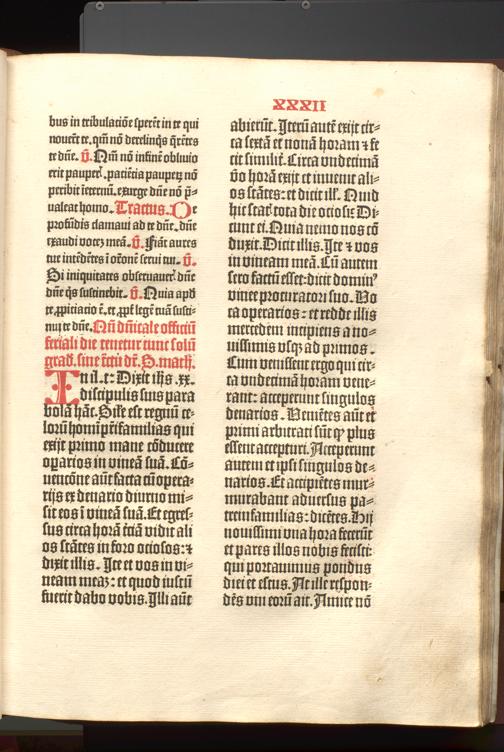 XXXII
bus in tribulatiōe sperēt in te qui
nouerūt te. qm̄ nō derelinq̄s q̄rētes
te dn̄e. v̄. Nm̄ nō infinē obliuio
erit pauperꝝ. patiētia pauperꝝ nō
peribit ineternū. exurge dn̄e nō p̄-
ualeat homo. Tractus. De
profūdis clamaui ad te dn̄e. dn̄e
exaudi vocez meā. v̄. Fiāt aures
tue intēdētes ī or̄onē serui tui. v̄.
Si iniquitates obseruauer᷑ dn̄e
dn̄e q̄s sustinebit. v̄. Quia apd̄
te ꝓpitiatio ē. et ꝓpt̄ legē tuā susti-
nui te dn̄e. Nū dn̄icale officiū
feriali die tenetur tunc solū
grad. sine tc̄tu dr̄. S. math.
In il. t: Dixit ih̄s .xx.
discipulis suis para
bolā hāc. Sil̄e est regnū ce-
lorū homī pr̄ifamilias qui
exijt primo mane cōducere
oparios in vineā suā. Cō-
uentiōne aūt facta cū opera-
rijs ex denario diurno mi-
sit eos ī vineā suā. Et egres-
sus circa horā tc̄iā vidit ali
os stātes in foro ociosos: ꝛ
dixit illis. Ite et vos in vi-
neam meaꝫ: et quod iustū
fuerit dabo vobis. Illi aūt
abierūt. Iterū autē exijt cir-
ca sextā et nonā horam ꝛ fe
cit similit᷑. Circa vndecimā
v̄o horā exijt et inuenit ali-
os stātes: et dicit ill᷑. Quid
hic stat᷑ tota die ociosi: Di-
cunt ei. Quia nemo nos cō
duxit. Dicit illis. Ite ꝛ vos
in vineam meā. Cū autem
sero factū esset: dicit domin᷒
vinee procuratori suo. Vo
ca operarios: et redde illis
mercedem incipiens a no-
uissimis vsqꝫ ad primos.
Cum venissent ergo qui cir-
ca vndecimā horam vene-
rant: acceperunt singulos
denarios. Veniētes aūt et
primi arbitrati sūt ꝙ plus
essent accepturi. Acceperunt
autem et ipsi singulos de-
narios. Et accipiētes mur-
murabant aduersus pa-
tremfamilias: dicētes. Hij
nouissimi vna hora fecerūt
et pares illos nobis fecisti:
qui portauimus pondus
diei et estus. At ille respon-
dēs vni eorū ait. Amice nō